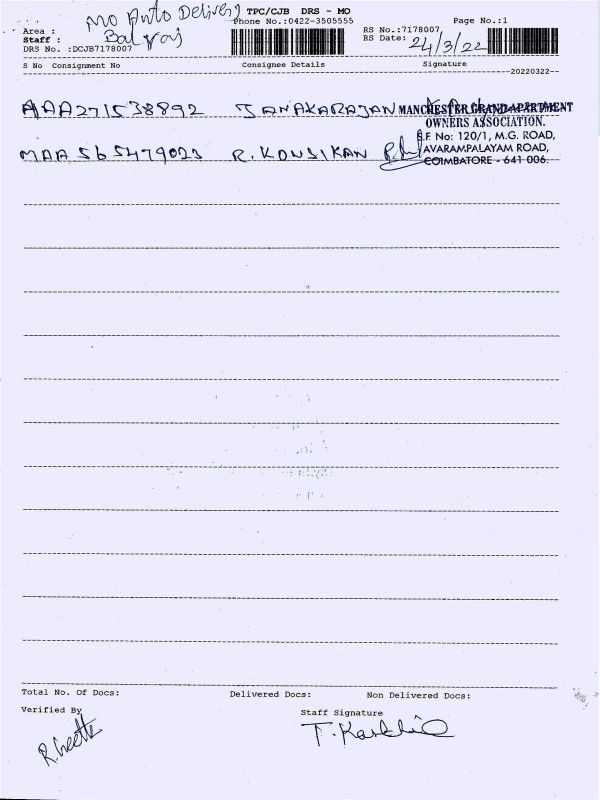 Mo Auto Delivery TPC/CJB DRS - MO
Area : Phone No.:0422-3505555 Page No.:1
Staff : Balraj RS No.:7178007
DRS No. :DCJB7178007 RS Date: 24/3/22
S No Consignment No Consignee Details Signature
20220322
AAA271538892 JANAKARAJAN MANCHESTER GRAND APARTMENT
OWNERS ASSOCIATION.
S.F No: 120/1, M.G. ROAD,
MAA565479023 R. KOUSIKAN AVARAMPALAYAM ROAD,
COIMBATORE - 641 006.
Total No. Of Docs: Delivered Docs: Non Delivered Docs:
Verified By Staff Signature